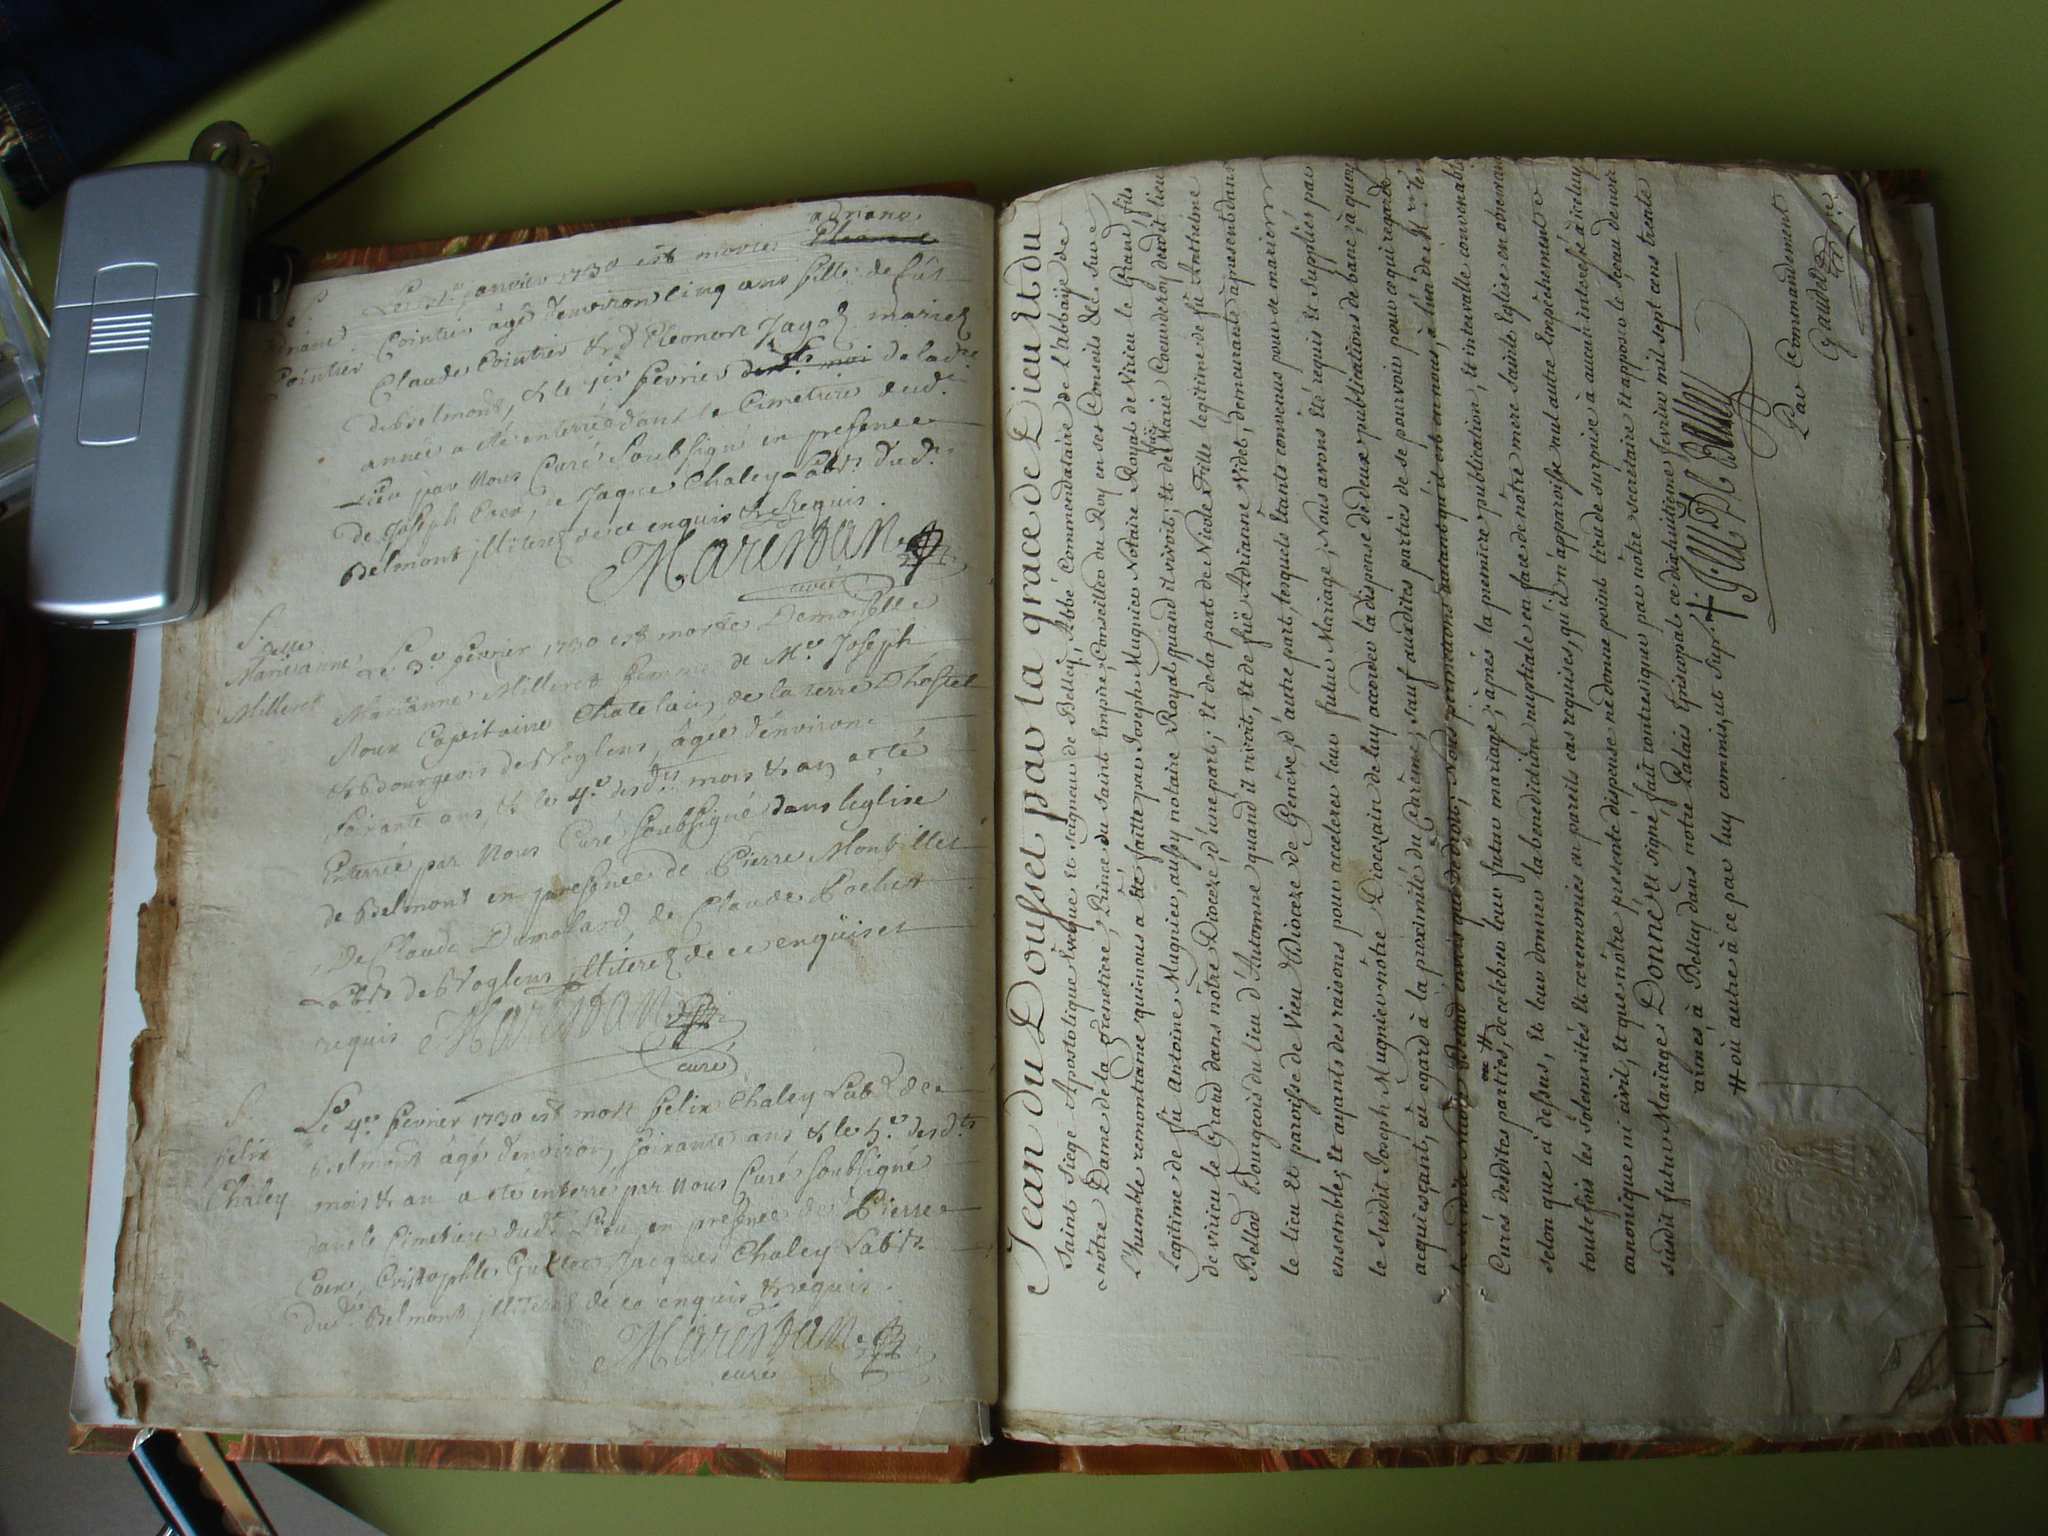 adriane
janvier 1730 est morte
Cointier âgé d'environ cinq ans fille de fût
Cointier
Claude Cointier & d' Eleonore Jagoz mariez
de Belmont, & le 1er février de lad.e
année a été enterrée dans le Cimetiere dud.
Lieu par Nous Curé soubsigné en presence
de Joseph Coex, de Jaque Chaley Lab.rs dud.
Belmont illiterez de ce enquis & Requis.
Marendan
curé
S.
D.elle
Marieanne
Milleret
Le 3.e février 1730 est morte Demoiselle
Marianne Milleret femme de M.e Joseph
Roux Capitaine Chatelain de la terre D'hostel
& Bourgeois de Voglens, âgée d'environ
soixante ans, & le 4.e desd.ts mois & an a été
Enterrée par Nous Curé soubsigné dans l'église
de Belmont en presence de Pierre Monbillet
De Claude Demolard, de Claude Pochet
Lab.rs de Voglens illiterez de ce enquis et
requis
Marendan
curé
S.
Felix
Chaley
Le 4.e février 1730 est mort Felix Chaley Lab.r de
Belmont âgé d'environ soixante ans & le 5.e desd.ts
mois & an a été interré par Nous Curé soubsigné
dans le Cimetiere dud. Lieu en presence de Pierre
Coex, Cristophle Jacques Chaley Lab.rs
dud. Belmont illiterez de ce enquis & requis.
Marendan
curé
Jean du Dousset par la grace de Dieu Et du
Saint Siege Apostolique Evêque et Seigneur de Belley, Abbé Commendataire de l'Abbaÿe de
nôtre Dame de la Grenetiere, Prince du Saint Empire, Conseiller du Roy en ses Conseils &c. Sur
L'humble remontrance qui nous a été faitte par Joseph Mugnier Notaire Royal de Virieu le Grand fils
Legitime de fû Antoine Mugnier, aussy notaire Royal quand il vivoit, et de Marie Coeuderon dudit lieu
de virieu le Grand dans nôtre Dioceze, d'une part; Et de la part de Nicole Fille legitime de fû Anthelme
Bellod Bourgeois du lieu d'Automne quand il vivoit, Et de fuë Adrianne Videt, demeurante à present dans
le lieu et paroisse de Vieu Udioceze de Genève, d'autre part, lesquels étants convenus pour se marier
ensemble; Et ayants des raisons pour accelerer leur futur Mariage, Nous avons été requis et suppliés par
le susdit Joseph Mugnier nôtre Diocezain de luy accorder la dispense de deux publications de banc, à quoy
acquiesçant, eû égard à la proximité du Carême; sauf auxdites parties de se pourvoir pour ce qui regarde
Bellod envers qui de droit; Nous permettons autant qu'il est en nous, à l'un de M.rs les
Curés desdites parties, ou # de celebrer leur futur mariage, après la premiere publication, Et intervalle convenable
selon que ci dessus, et leur donner la benediction nuptiale en face de nôtre mere Sainte Eglise en observant
toutefois les solemnités Et ceremonies en pareils cas requises, qu'il n'apparoisse nul autre Empêchement
canonique ni civil, Et que nôtre presente dispense ne donne point titre de surprise à aucun interessé à iceluy
susdit futur Mariage Donné et signé fait contresigner par nôtre secretaire et apposer le sceau de nos
armes à Belley dans nôtre Palais Episcopal ce dixhuitieme fevrier mil sept cens trente
# où autre à ce par luy commis, ut sup.
Par Commandement